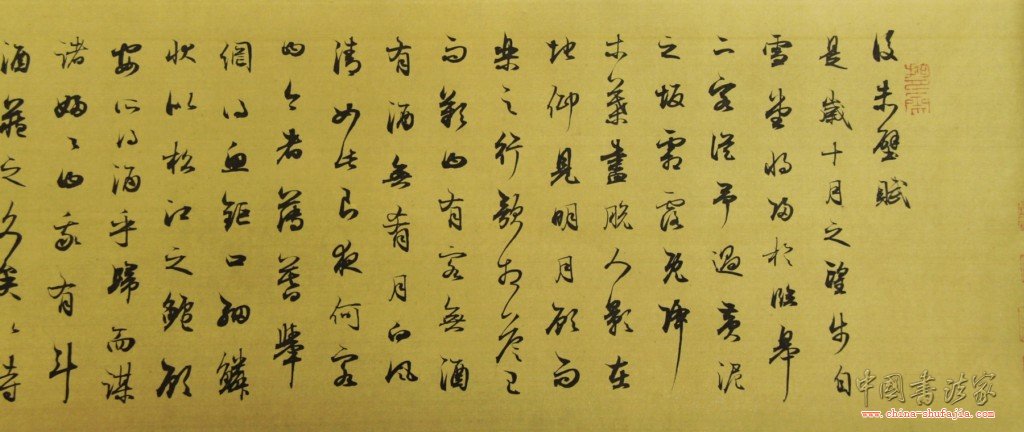 後赤壁賦
是歲十月之望步自
雪堂將歸於臨皋
二客從予過黃泥
之坂霜露既降
木葉盡脫人影在
地仰見明月顧而
樂之行歌相答已
而歎曰有客無酒
有酒無肴月白風
清如此良夜何客
曰今者薄暮舉
網得魚鉅口細鱗
狀似松江之鱸顧
安所得酒乎歸而謀
諸婦〻曰我有斗
酒藏之久矣以待
中國書法家
www.china-shufajia.com